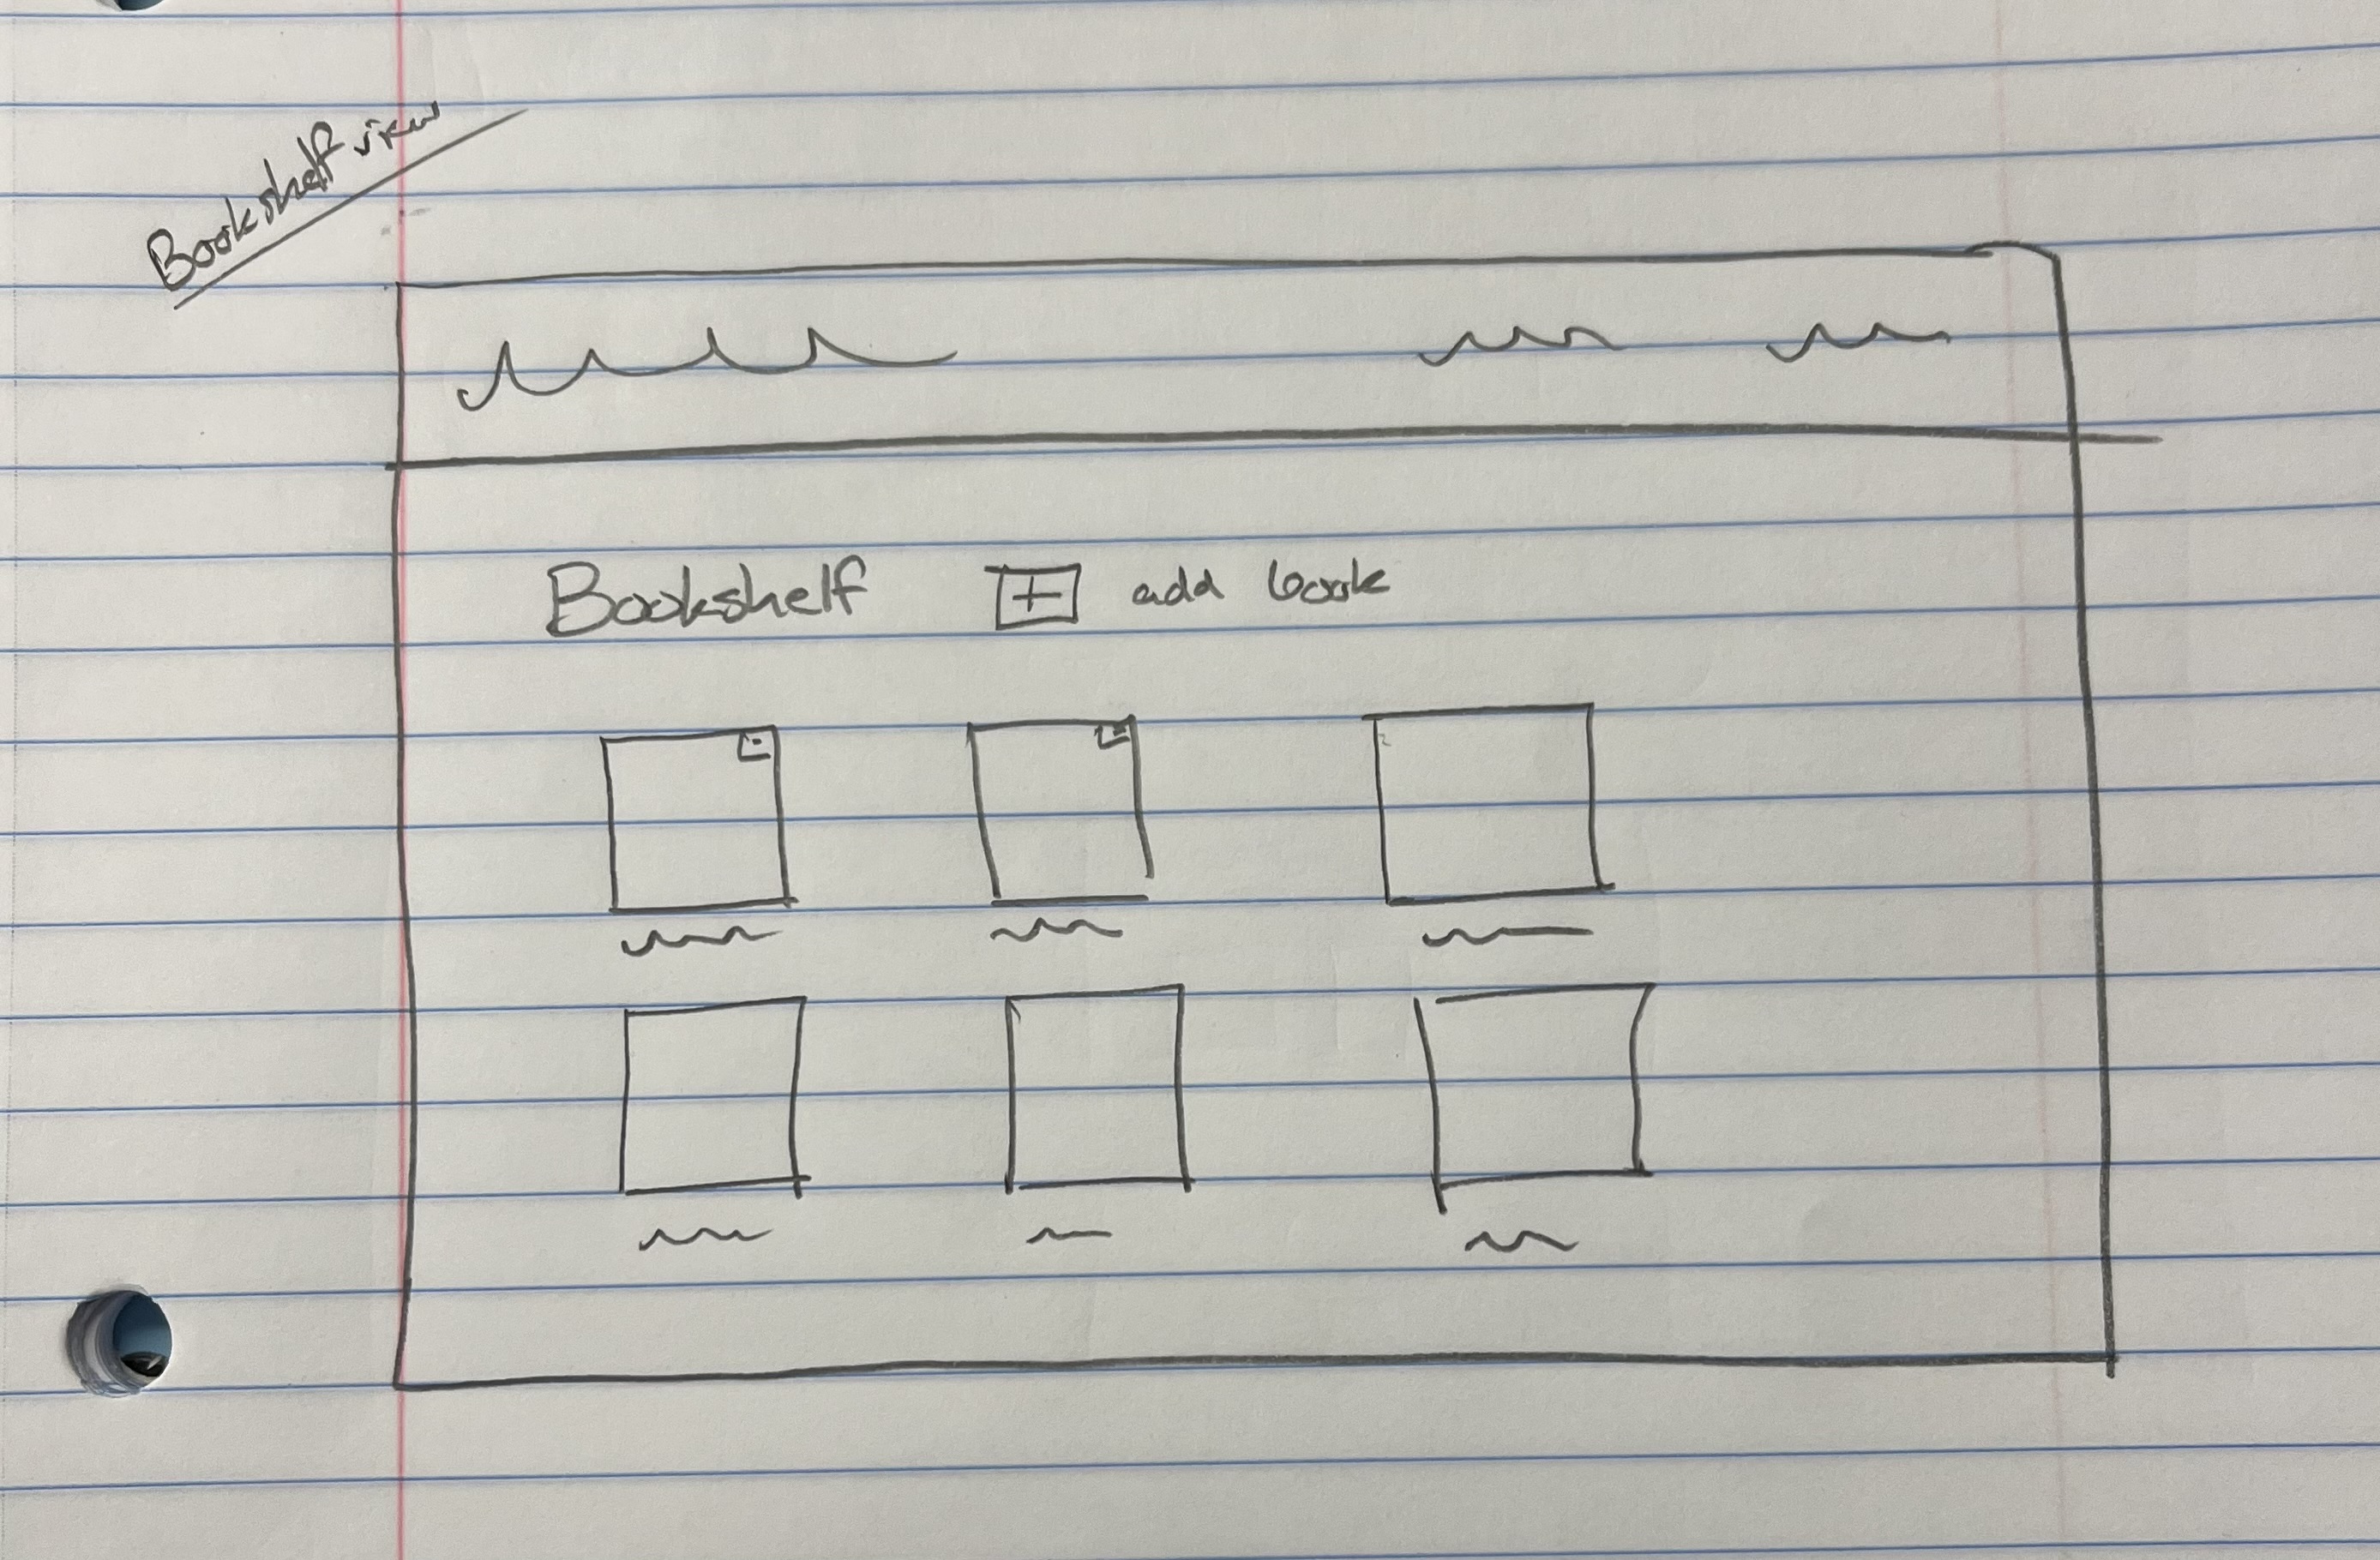 Bookshelf view
Bookshelf + add book